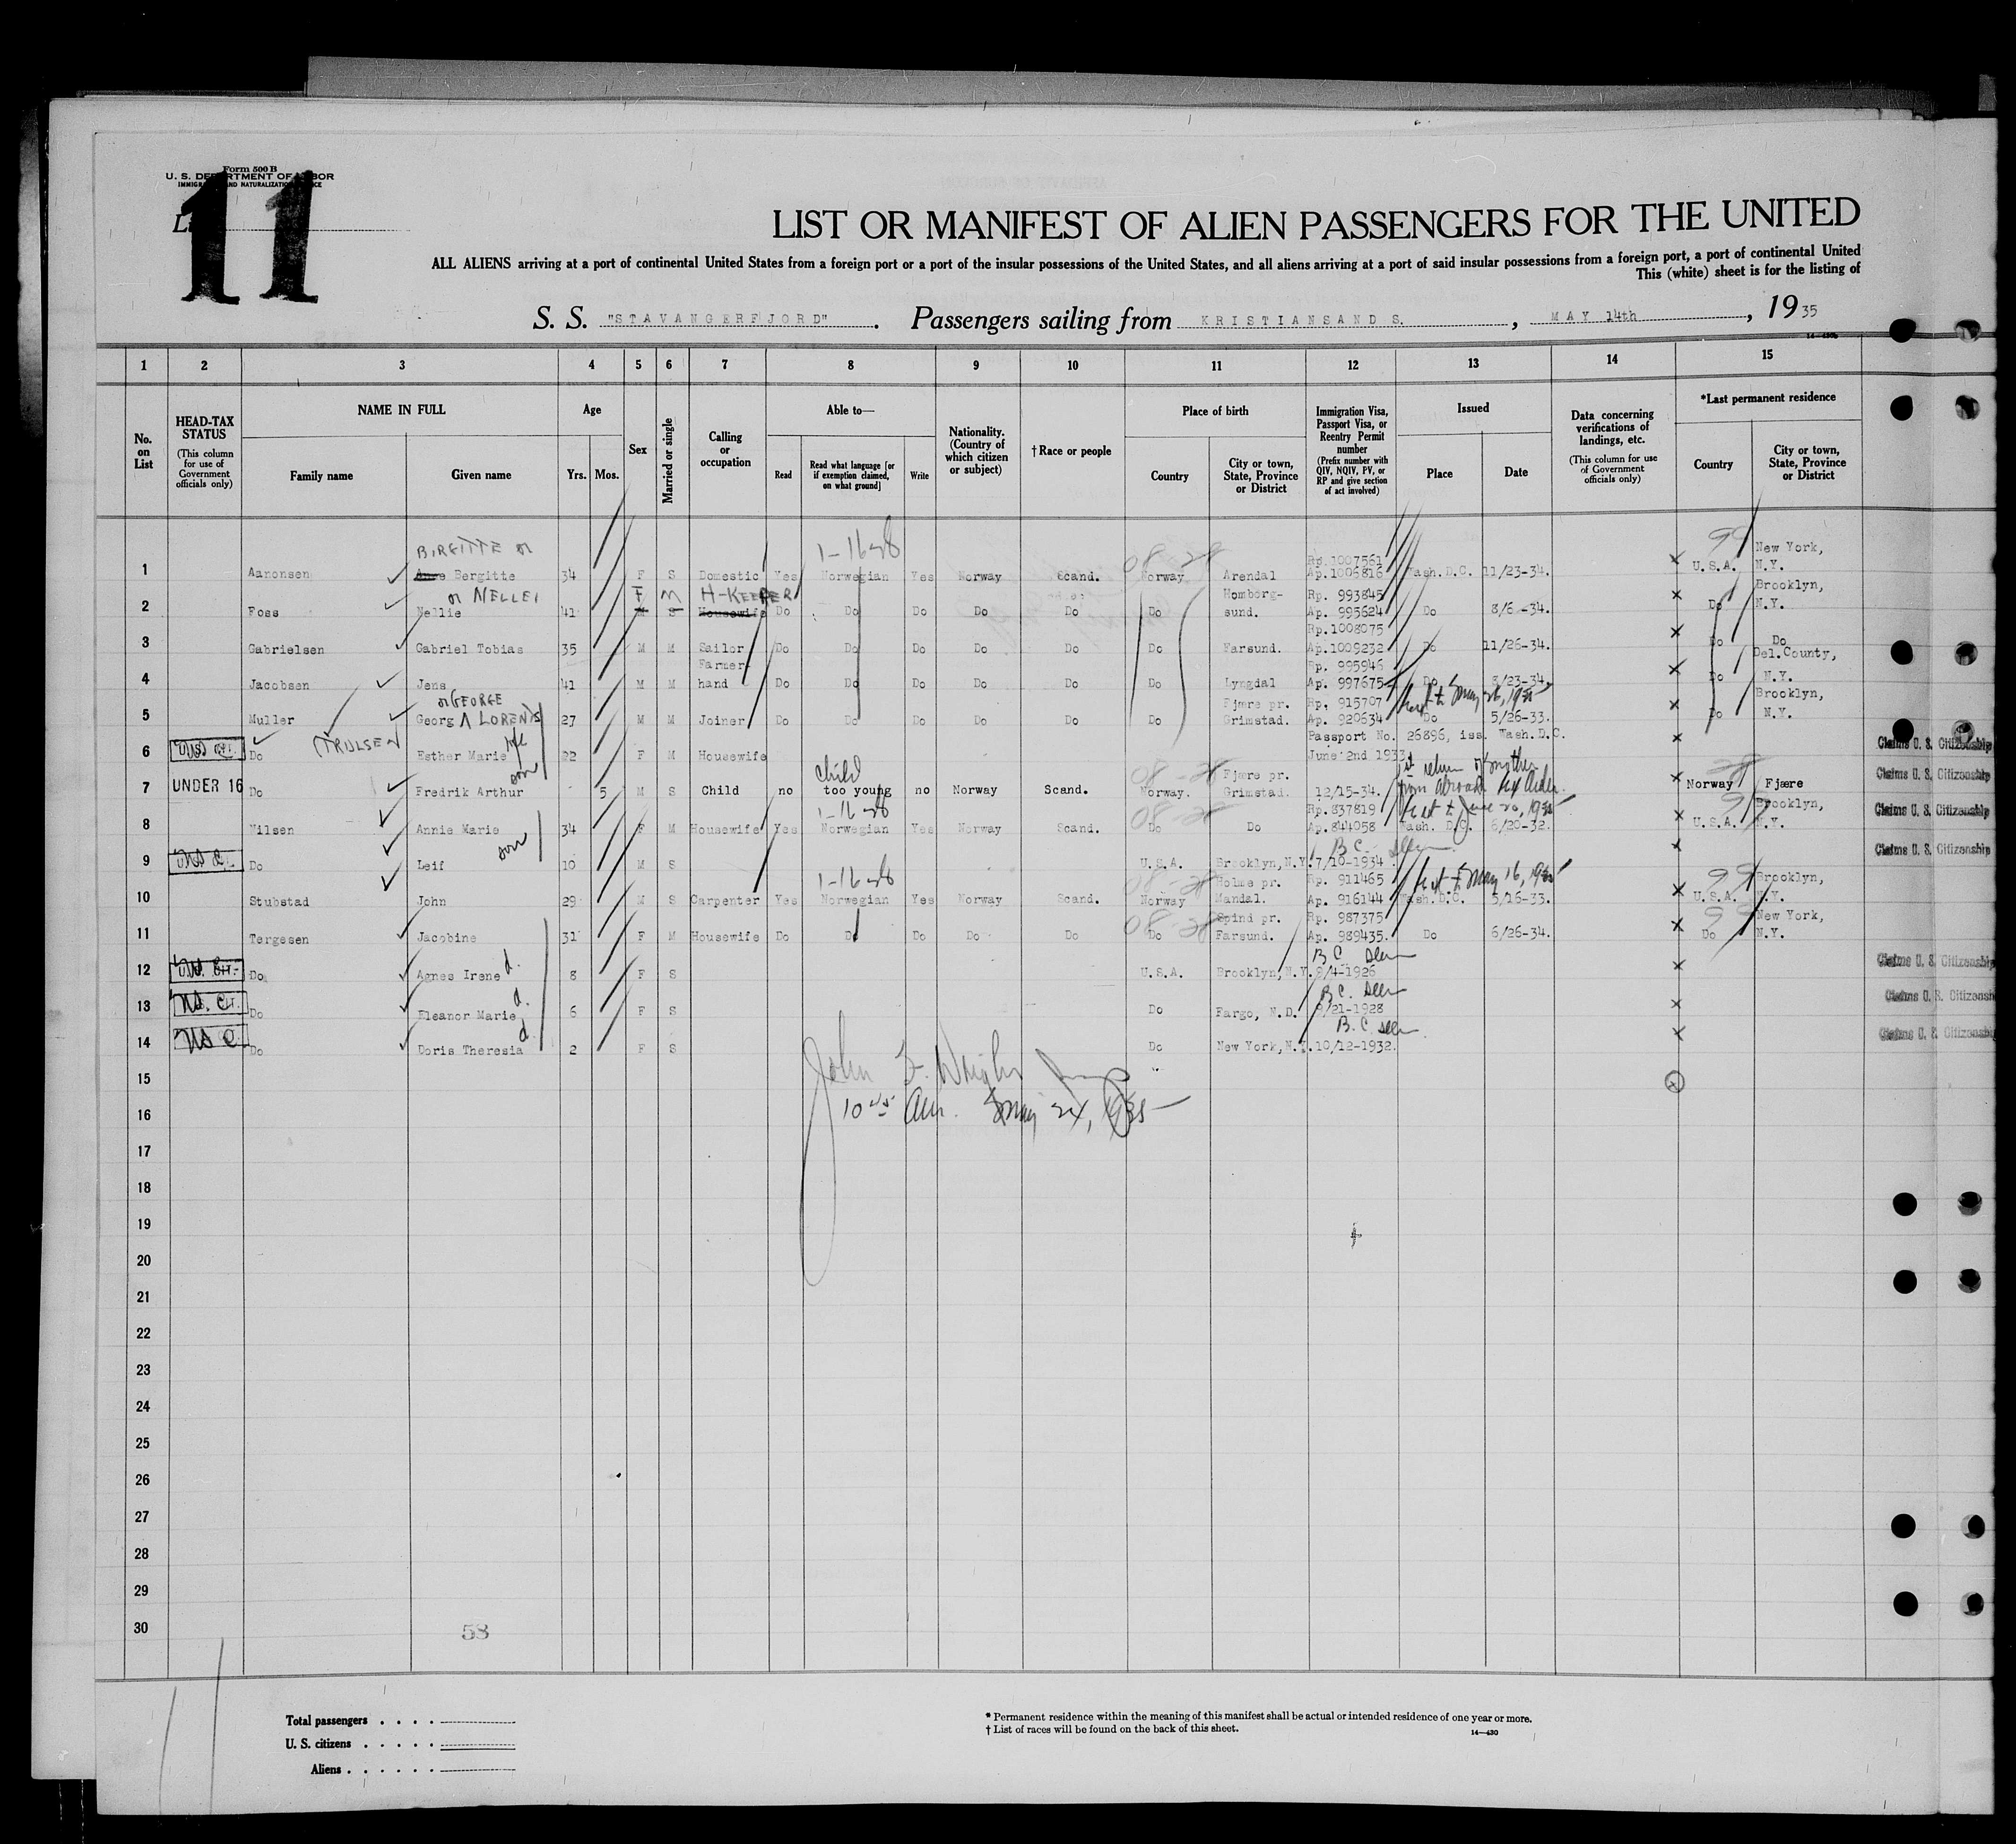 Form 500 B
U. S. DEPARTMENT OF LABOR
IMMIGRATION AND NATURALIZATION SERVICE
11
LIST OR MANIFEST OF ALIEN PASSENGERS FOR THE UNITED
ALL ALIENS arriving at a port of continental United States from a foreign port or a port of the insular possessions of the United States, and all aliens arriving at a port of said insular possessions from a foreign port, a port of continental United
This (white) sheet is for the listing of
S. S. "STAVANGERFJORD". Passengers sailing from KRISTIANSAND S., MAY 14th, 1935
14-430
1 2 3 4 5 6 7 8 9 10 11 12 13 14 15
No. on List
HEAD-TAX STATUS (This column for use of Government officials only)
NAME IN FULL Family name Given name
Age Yrs. Mos.
Sex
Married or single
Calling or occupation
Able to— Read Read what language [or if exemption claimed, on what ground] Write
Nationality. (Country of which citizen or subject)
† Race or people
Place of birth Country City or town, State, Province or District
Immigration Visa, Passport Visa, or Reentry Permit number (Prefix number with QIV, NQIV, PV, or RP and give section of act involved)
Issued Place Date
Data concerning verifications of landings, etc. (This column for use of Government officials only)
*Last permanent residence Country City or town, State, Province or District
BIRGITTE or 1-16-28 08-28 Rp.1007561 99 New York,
1 Aaronsen Bergitte 34 F S Domestic Yes Norwegian Yes Norway Scand. Norway Arendal Ap.1006816 Wash.D.C. 11/23-34. x U.S.A. N.Y.
or NELLEI F M H-KEEPER Homborg- Rp. 993845 Brooklyn,
2 Foss Nellie 41 S Housewife Do Do Do Do Do Do sund. Ap. 995624 Do 8/6 -34. x Do N.Y.
Rp.1008075
3 Gabrielsen Gabriel Tobias 35 M M Sailor Do Do Do Do Do Do Farsund. Ap.1009232 Do 11/26-34. x Do Do
Farmer- Rp. 995946 Del.County,
4 Jacobsen Jens 41 M M hand Do Do Do Do Do Do Lyngdal Ap. 997675 Do 8/23-34. x Do N.Y.
or GEORGE Fjære pr. Rp. 915707 ext to May 26, 1935 Brooklyn,
5 Muller Georg LORENTS 27 M M Joiner Do Do Do Do Do Do Grimstad. Ap. 920634 Do 5/26-33. x Do N.Y.
(TRULSEN) wife Passport No. 26896, iss. Wash.D.C.
6 U.S. CIT. Do Esther Marie 22 F M Housewife June 2nd 1933 x Claims U. S. Citizenship
son child 08-28 Fjære pr. 1st return of mother 28 Claims U. S. Citizenship
7 UNDER 16 Do Fredrik Arthur 5 M S Child no too young no Norway Scand. Norway. Grimstad. 12/15-34. from abroad x Norway Fjære
1-16-28 08-28 Rp.837819 ext to June 20, 1935 9 Brooklyn, Claims U. S. Citizenship
8 Nilsen Annie Marie 34 F M Housewife Yes Norwegian Yes Norway Scand. Do Do Ap.844058 Wash. D.C. 6/20-32. x U.S.A. N.Y.
son B.C. seen Claims U. S. Citizenship
9 Do Leif 10 M S U.S.A. Brooklyn,N.Y. 7/10-1934 x
1-16-28 08-28 Holme pr. Rp. 911465 ext to May 16, 1935 99 Brooklyn,
10 Stubstad John 29 M S Carpenter Yes Norwegian Yes Norway Scand. Norway Mandal. Ap. 916144 Wash.D.C. 5/16-33. x U.S.A. N.Y.
08-28 Spind pr. Rp. 987375 99 New York,
11 Tergesen Jacobine 31 F M Housewife Do Do Do Do Do Do Farsund. Ap. 989435. Do 6/26-34. x Do N.Y.
BC seen Claims U. S. Citizenship
12 U.S. CIT. Do Agnes Irene d. 8 F S U.S.A. Brooklyn,N.Y. 9/4-1926 x
B.C. seen Claims U. S. Citizenship
13 Do Eleanor Marie d. 6 F S Do Fargo, N.D. 8/21-1928 x
B.C. seen Claims U. S. Citizenship
14 Do Doris Theresia d 2 F S Do New York,N.Y. 10/12-1932. x
15 John F. Wright
16 May 24, 1935
17
18
19
20
21
22
23
24
25
26
27
28
29
30
58
Total passengers
U. S. citizens
Aliens
* Permanent residence within the meaning of this manifest shall be actual or intended residence of one year or more.
† List of races will be found on the back of this sheet.
14—430